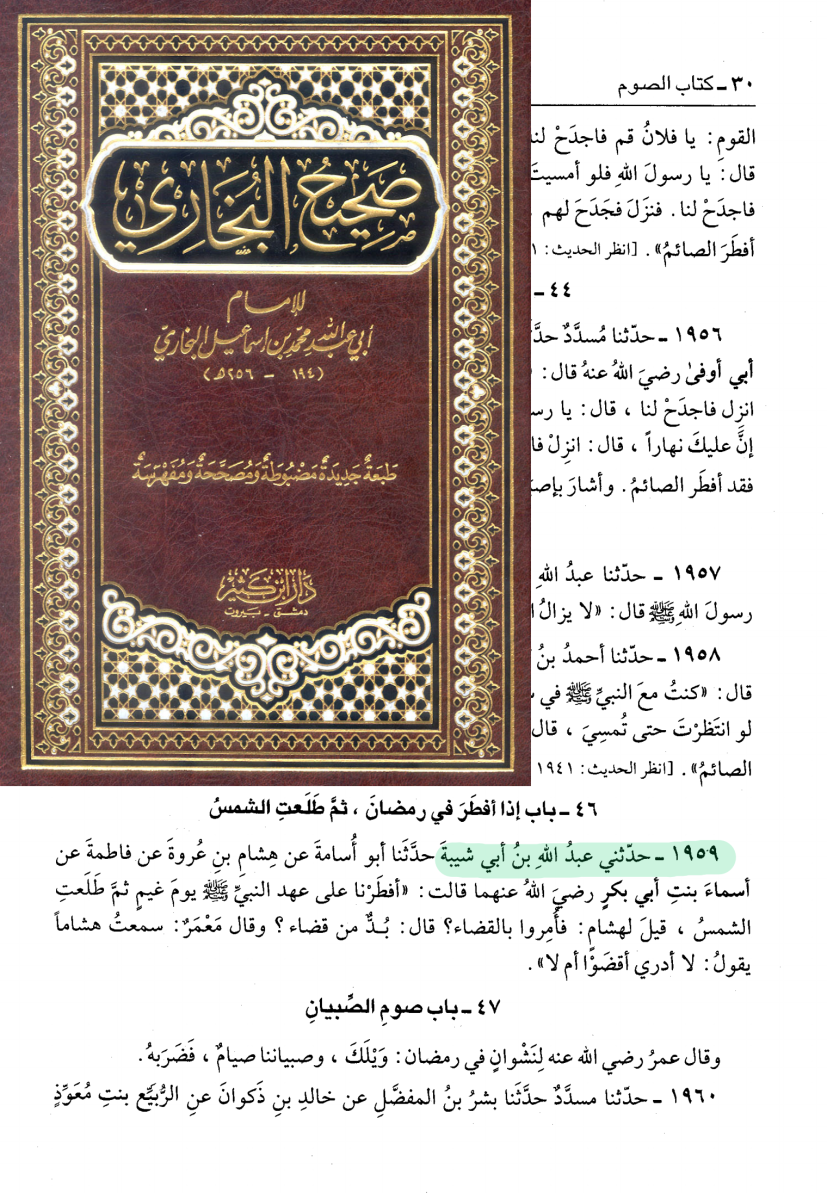 صَحِيحُ البُخَارِي
للإمام
أبي عبد الله محمد بن إسماعيل البخاري
(١٩٤ - ٢٥٦ هـ)
طَبعَةٌ جَدِيدَةٌ مَضْبُوطَةٌ وَمُصَحَّحَةٌ وَمُفَهْرَسَةٌ
دَارُ ابن كَثير
دمشق - بيروت
٣٠ - كتاب الصوم
القومِ: يا فلانُ قم فاجدَحْ لنا
قال: يا رسولَ اللهِ فلو أمسيتَ
فاجدَحْ لنا. فنزَلَ فجَدَحَ لهم
أفطَرَ الصائمُ». [انظر الحديث: ١
٤٤ -
١٩٥٦ - حدّثنا مُسدَّدٌ حدَّ
أبي أوفىٰ رضيَ اللهُ عنهُ قال:
انزِل فاجدَحْ لنا ، قال: يا رس
إنَّ عليكَ نهاراً ، قال: انزِلْ فا
فقد أفطَر الصائمُ. وأشارَ بإص
١٩٥٧ - حدّثنا عبدُ اللهِ
رسولَ اللهِ ﷺ قال: «لا يزالُ ا
١٩٥٨ - حدّثنا أحمدُ بنُ
قال: «كنتُ معَ النبيِّ ﷺ في س
لو انتَظرْتَ حتى تُمسِيَ ، قال
الصائمُ». [انظر الحديث: ١٩٤١
٤٦ - باب إذا أفطَرَ في رمضانَ ، ثمَّ طَلَعتِ الشمسُ
١٩٥٩ - حدّثني عبدُ اللهِ بنُ أبي شيبةَ حدَّثَنا أبو أُسامةَ عن هِشامِ بنِ عُروةَ عن فاطمةَ عن
أسماءَ بنتِ أبي بكرٍ رضيَ اللهُ عنهما قالت: «أفطَرْنا على عهد النبيِّ ﷺ يومَ غيمٍ ثمَّ طَلَعتِ
الشمسُ ، قيلَ لهشامٍ: فأُمِروا بالقضاء؟ قال: بُـدٌّ من قضاء؟ وقال مَعْمَرٌ: سمعتُ هشاماً
يقولُ: لا أدري أقضَوْا أم لا».
٤٧ - باب صومِ الصِّبيانِ
وقال عمرُ رضي الله عنه لِنَشْوانٍ في رمضان: وَيْلَكَ ، وصبياننا صيامٌ ، فَضَرَبهُ.
١٩٦٠ - حدّثنا مسدَّدٌ حدَّثَنا بشرُ بنُ المفضَّلِ عن خالدِ بنِ ذَكوانَ عنِ الرُّبيِّع بنتِ مُعَوِّذٍ